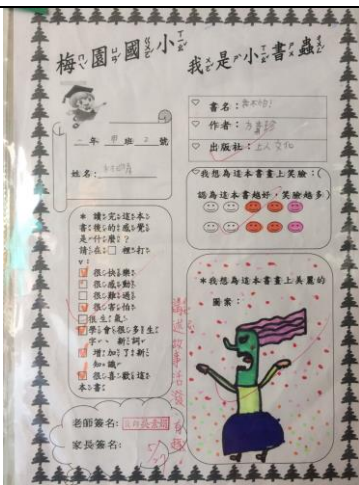 梅園國小
我是小書蟲
一年甲班2號
姓名:
書名:我不怕!
作者:方素珍
出版社:上人文化
我想為這本書畫上笑臉:(
認為這本書越好,笑臉越多)
*讀完這本
書後的感覺
是什麼?
請在□裡打
v:
很快樂
很感動
很難過
很害怕
很生氣
學會很多生
字、新詞
增加了新
知識
很喜歡這
本書
*我想為這本書畫上美麗的
圖案:
老師簽名:
家長簽名: